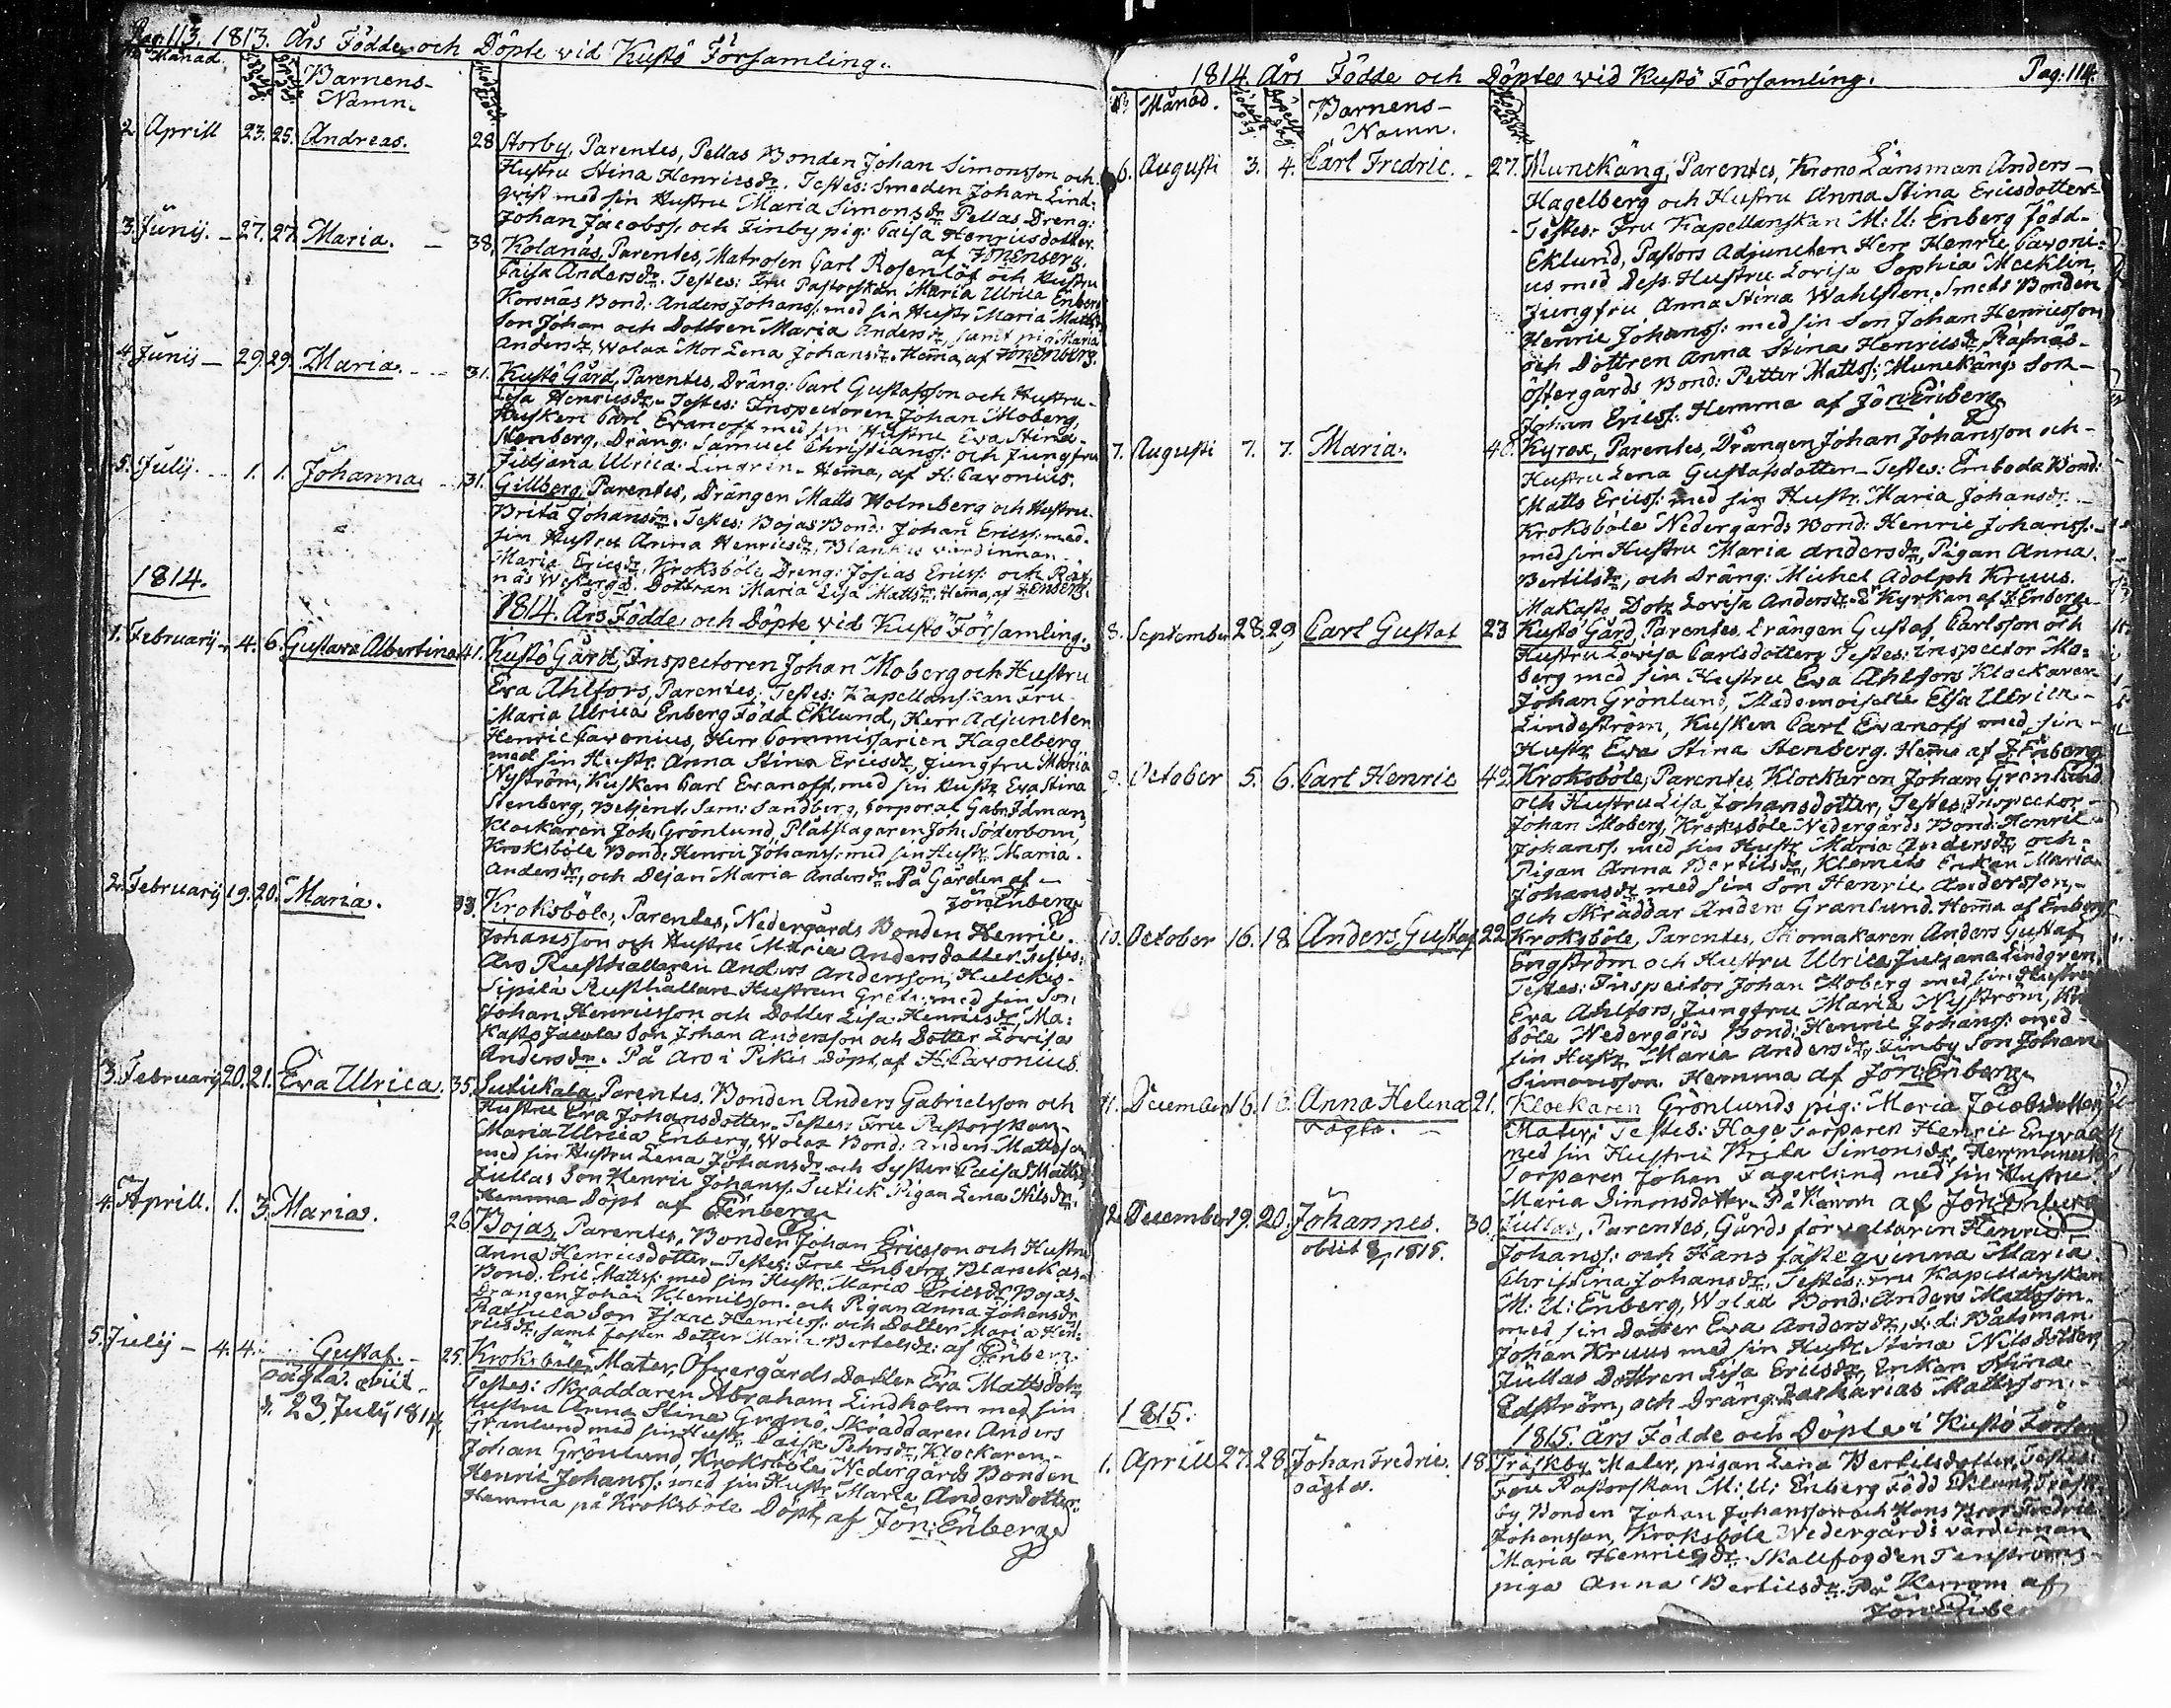 Pag. 113. 1813. Års Födde och Döpte vid Kustö Församling.
Månad. Barnens-
Namn.
2. Aprill 23. 25. Andreas. 28 Storby, Parentes, Pellas Bonden Johan Simonsson och
Hustru Stina Henricsdr. Testes: Smeden Johan Lind-
qvist med sin Hustru Maria Simonsdr Pellas Dreng:
Johan Jacobss. och Finby pig: Caisa Henricsdotter.
af Jön Enberg.
3. Junij. 27. 27. Maria. 38. Kolanäs, Parentes, Matrosen Carl Rosenlöf och Hustru
Caisa Andersdr. Testes: Fru Pastorskan Maria Ulrica Enberg
Korsnäs Bond: Anders Johanss: med sin Hustr Maria Mattsdr
Son Johan och Dottren Maria Andersdr, samt pig. Maria
Andersdr, Wolax Mor Lena Johansdr. Hema, af Jön Enberg.
4. Junij 29. 29. Maria. 31. Kustö Gård, Parentes, Dräng: Carl Gustafsson och Hustru
Lisa Henricsdr. Testes: Inspectoren Johan Moberg,
Kusken Carl Evanoff med sin Hustru Eva Stina
Stenberg, Dräng: Samuel Christianss: och Jungfru
Juljana Ulrica Lingrin. Hema, af H: Cavonius.
5. Julij. 1. 1. Johanna 31. Gillberg, Parentes, Drängen Matts Holmberg och Hustru
Brita Johansdr. Testes: Bojas Bond: Johan Ericss: med
sin Hustru Anna Henricsdr, Blankas värdinnan
Maria Ericsdr, Kroksböle Dreng: Josias Ericss: och Räf-
näs Westergds. Dottran Maria Lisa Mattsdr. Hema, af J: Enberg.
1814.
1814. Års Födde och Döpte vid Kustö Församling.
1. Februarij 4. 6. Gustava Albertina 41. Kustö Gård, Inspectoren Johan Moberg och Hustru
Eva Ahlfors, Parentes; Testes: Kapellanskan Fru
Maria Ulrica Enberg Född Eklund, Herr Adjuncten
Henric Cavonius, Herr Commissarien Hagelberg
med sin Hustr. Anna Stina Ericsdr, Jungfru Maria
Nyström, Kusken Carl Evanoff, med sin Hustr Eva Stina
Stenberg, Betjent. Sam: Sandberg, Corporal Gabr. Idman,
Klockaren Joh. Grönlund, Plåtslagaren Joh: Söderbom,
Kroksböle Bond: Henric Johanss: med sin Hustr: Maria
Andersdr, och Dejan Maria Andersdr På Gården af
Jön Enberg
2. Februarij 19. 20. Maria. 33. Kroksböle, Parentes, Nedergårds Bonden Henric
Johansson och Hustru Maria Andersdotter. Testes:
Aro Rusthallaren Anders Andersson, Hulckas-
Sipilä Rusthållare Hustrun Greta med sin Son
Johan Henricsson och Dotter Lisa Henricsdr, Ma:
kasto Jacola Son Johan Andersson och Dotter Lovisa
Andersdr. På Aro i Pikis Döpt af H. Cavonius.
3. Februarij 20. 21. Eva Ulrica. 35. Sutickala, Parentes, Bonden Anders Gabrielsson och
Hustru Eva Johansdotter. Testes: Fru Pastorskan
Maria Ulrica Enberg, Wolax Bond: Anders Mattsson
med sin Hustru Lena Johansdr och Syster Caisa Mattsdr
Jullas Son Henric Johanss. Sutick. Pigan Lena Nilsdr.
Hemma Döpt af Enberg
4. Aprill. 1. 3. Maria. 26. Bojas, Parentes, Bonden Johan Ericsson och Hustru
Anna Henricsdotter. Testes: Fru Enberg Blanckas
Bond. Eric Matts: med sin Hustr. Maria Ericsdr Bojas
Drängen Johan Klemitsson. och Pigan Anna Johansdr
Rattula Son Isaac Henricss: och Dotter Maria Hen:
ricsdr. samt foster Dotter Maria Bertelsdr: af Enberg.
5. Julij 4. 4. Gustaf. 25. Kroksböle, Mater, Öfvergårds Dotter Eva Mattsdotr
oägta. obiit
d. 23 Julij 1814.
Testes: Skräddaren Abraham Lindholm med sin
Hustru Anna Stina Granö, Skräddaren Anders
Granlund med sin Hustr: Caisa Petersdr, Klockaren
Johan Grönlund, Kroksböle Nedergårds Bonden
Henric Johanss: med sin Hustr Maria Andersdotter.
Hemma på Kroksböle Döpt af Jön: Enberg
1814. Års Födde och Döptes vid Kustö Församling. Pag: 114
Månad. Barnens-
Namn.
6. Augusti 3. 4. Carl Fredric. 27. Munckäng, Parentes, Krono Länsman Anders
Hagelberg och Hustru Anna Stina Ericsdotter
Testes: Fru Kapellanskan M: U: Enberg född
Eklund, Pastors Adjuncten Herr Henric Cavoni-
us med Dess Hustru Lovisa Sophia Mecklin,
Jungfru Anna Stina Wahlsten, Smeds Bonden
Henric Johanss: med sin Son Johan Henricsson
och Dottren Anna Stina Henricsdr, Räfnäs
Östergårds Bond: Petter Mattss: Munckängs Son
Johan Ericss: Hemma af Jön Enberg
7. Augusti 7. 7. Maria. 40. Kyrox, Parentes, Drängen Johan Johansson och
Hustru Lena Gustafsdotter. Testes: Emboda Bond:
Matts Ericss: med sin Hustr. Maria Johansdr
Kroksböle Nedergårds Bond: Henric Johanss:
med sin Hustru Maria Andersdr, Pigan Anna
Bertilsdr, och Dräng: Michel Adolph Kruus.
Makasto Dotr Lovisa Andersdr. I Kyrkan af J: Enberg
8. September 28. 29 Carl Gustaf 23 Kustö Gård, Parentes, Drängen Gustaf Carlsson och
Hustru Lovisa Carlsdotter, Testes: Inspector Mo:
berg med sin Hustru Eva Ahlfors Klockaren
Johan Grönlund, Mademoiselle Elsa Ulrica
Lindeström, Kusken Carl Evanoff med sin
Hustr Eva Stina Stenberg. Hema af J: Enberg
9. October 5. 6. Carl Henric 42. Kroksböle, Parentes, Klockaren Johan Grönlund
och Hustru Lisa Johansdotter, Testes, Inspector
Johan Moberg, Kroksböle Nedergårds Bond: Henric
Johanss. med sin Hustr Maria Andersdr, och
Pigan Anna Bertilsdr, Klemets Enkan Maria
Johansdr med sin Son Henric Andersson,
och Skräddar Anders Granlund. Hema af Enberg
10. October 16. 18 Anders Gustaf 22. Kroksböle, Parentes, Skomakaren Anders Gustaf
Engström och Hustru Ulrica Juljana Lindgren
Testes: Inspector Johan Moberg med sin Hustru
Eva Ahlfors, Jungfru Maria Nyström, Kr
böle Nedergårds Bond: Henric Johanss: med
sin Hustr Maria Andersdr, Finby Son Johan
Simonsson. Hemma af Jön: Enberg
11. December 16. 18. Anna Helena 21. Klockaren Grönlunds pig: Maria Jacobsdotter
oägta.
Mater; Testes: Haga Torparen Henric Engvall
med sin Hustru Brita Simonsdr, Herrmansk
Torparen Johan Fagerlund med sin Hustru
Maria Simonsdotter. På Kerrom af Jön Enberg
12. December 19. 20. Johannes. 30. Jullas, Parentes, Gårds förvaltaren Henric
obiit 8/1 1815.
Johanss: och Hans fästeqvinna Maria
Christina Johansdr. Testes: Fru Kapellanskan
M: U: Enberg, Wolax Bond: Anders Mattsson
med sin Dotter Eva Andersdr, d: d: Båtsman
Johan Kruus med sin Hustr Stina Nilsdotter
Jullas Dottren Lisa Ericsdr, Enkan Stina
Edström, och Dräng: Zacharias Mattsson.
1815.
1815. Års Födde och Döpte i Kustö Försam
1. Aprill 27. 28. Johan Fredric. 18. Träskby, Mater, pigan Lena Bertilsdotter, Testes:
oägta.
Fru Pastorskan M: U: Enberg Född Eklund, Träsk-
by Bonden Johan Johansson och Hans Bror Fredric
Johansson, Kroksböle Nedergårds värdinnan
Maria Henricsdr. Skallfogden Tenströms
piga Anna Bertilsdr. På Kerrom af
Jön Enbe